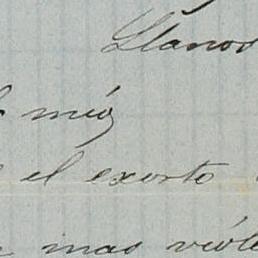 Llanos
mio,
el exorto
mas viole